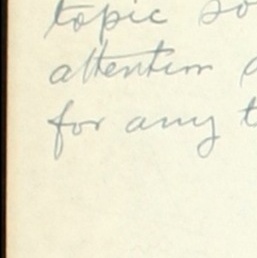 topic so
attention
for any t